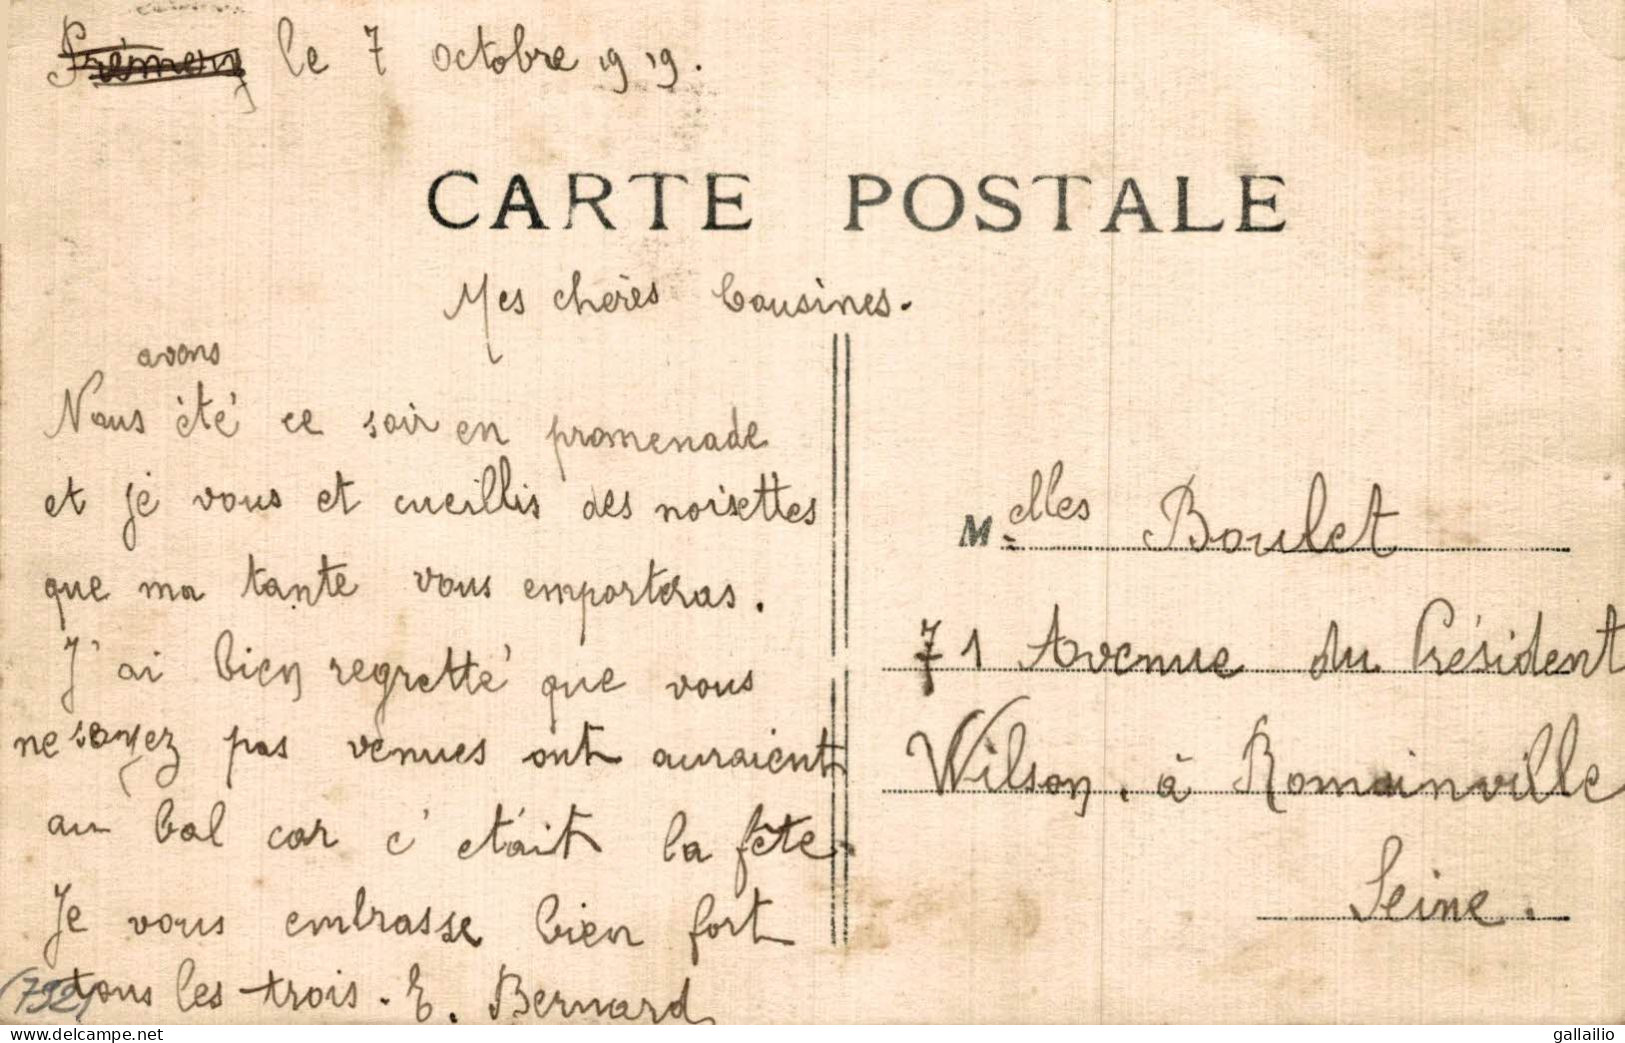 le 7 octobre 1919.
CARTE POSTALE
Mes chères Cousines.
avons
Nous été ce soir en promenade
et je vous et cueillis des noisettes
que ma tante vous emporteras.
J'ai bien regretté que vous
ne soyez pas venues ont auraient
au bal car c'etait la fête.
Je vous embrasse bien fort
tous les trois. E. Bernard
(792)
Melles Boulet
71 Avenue du Président
Wilson. à Romainville
Seine.
www.delcampe.net
gallailio